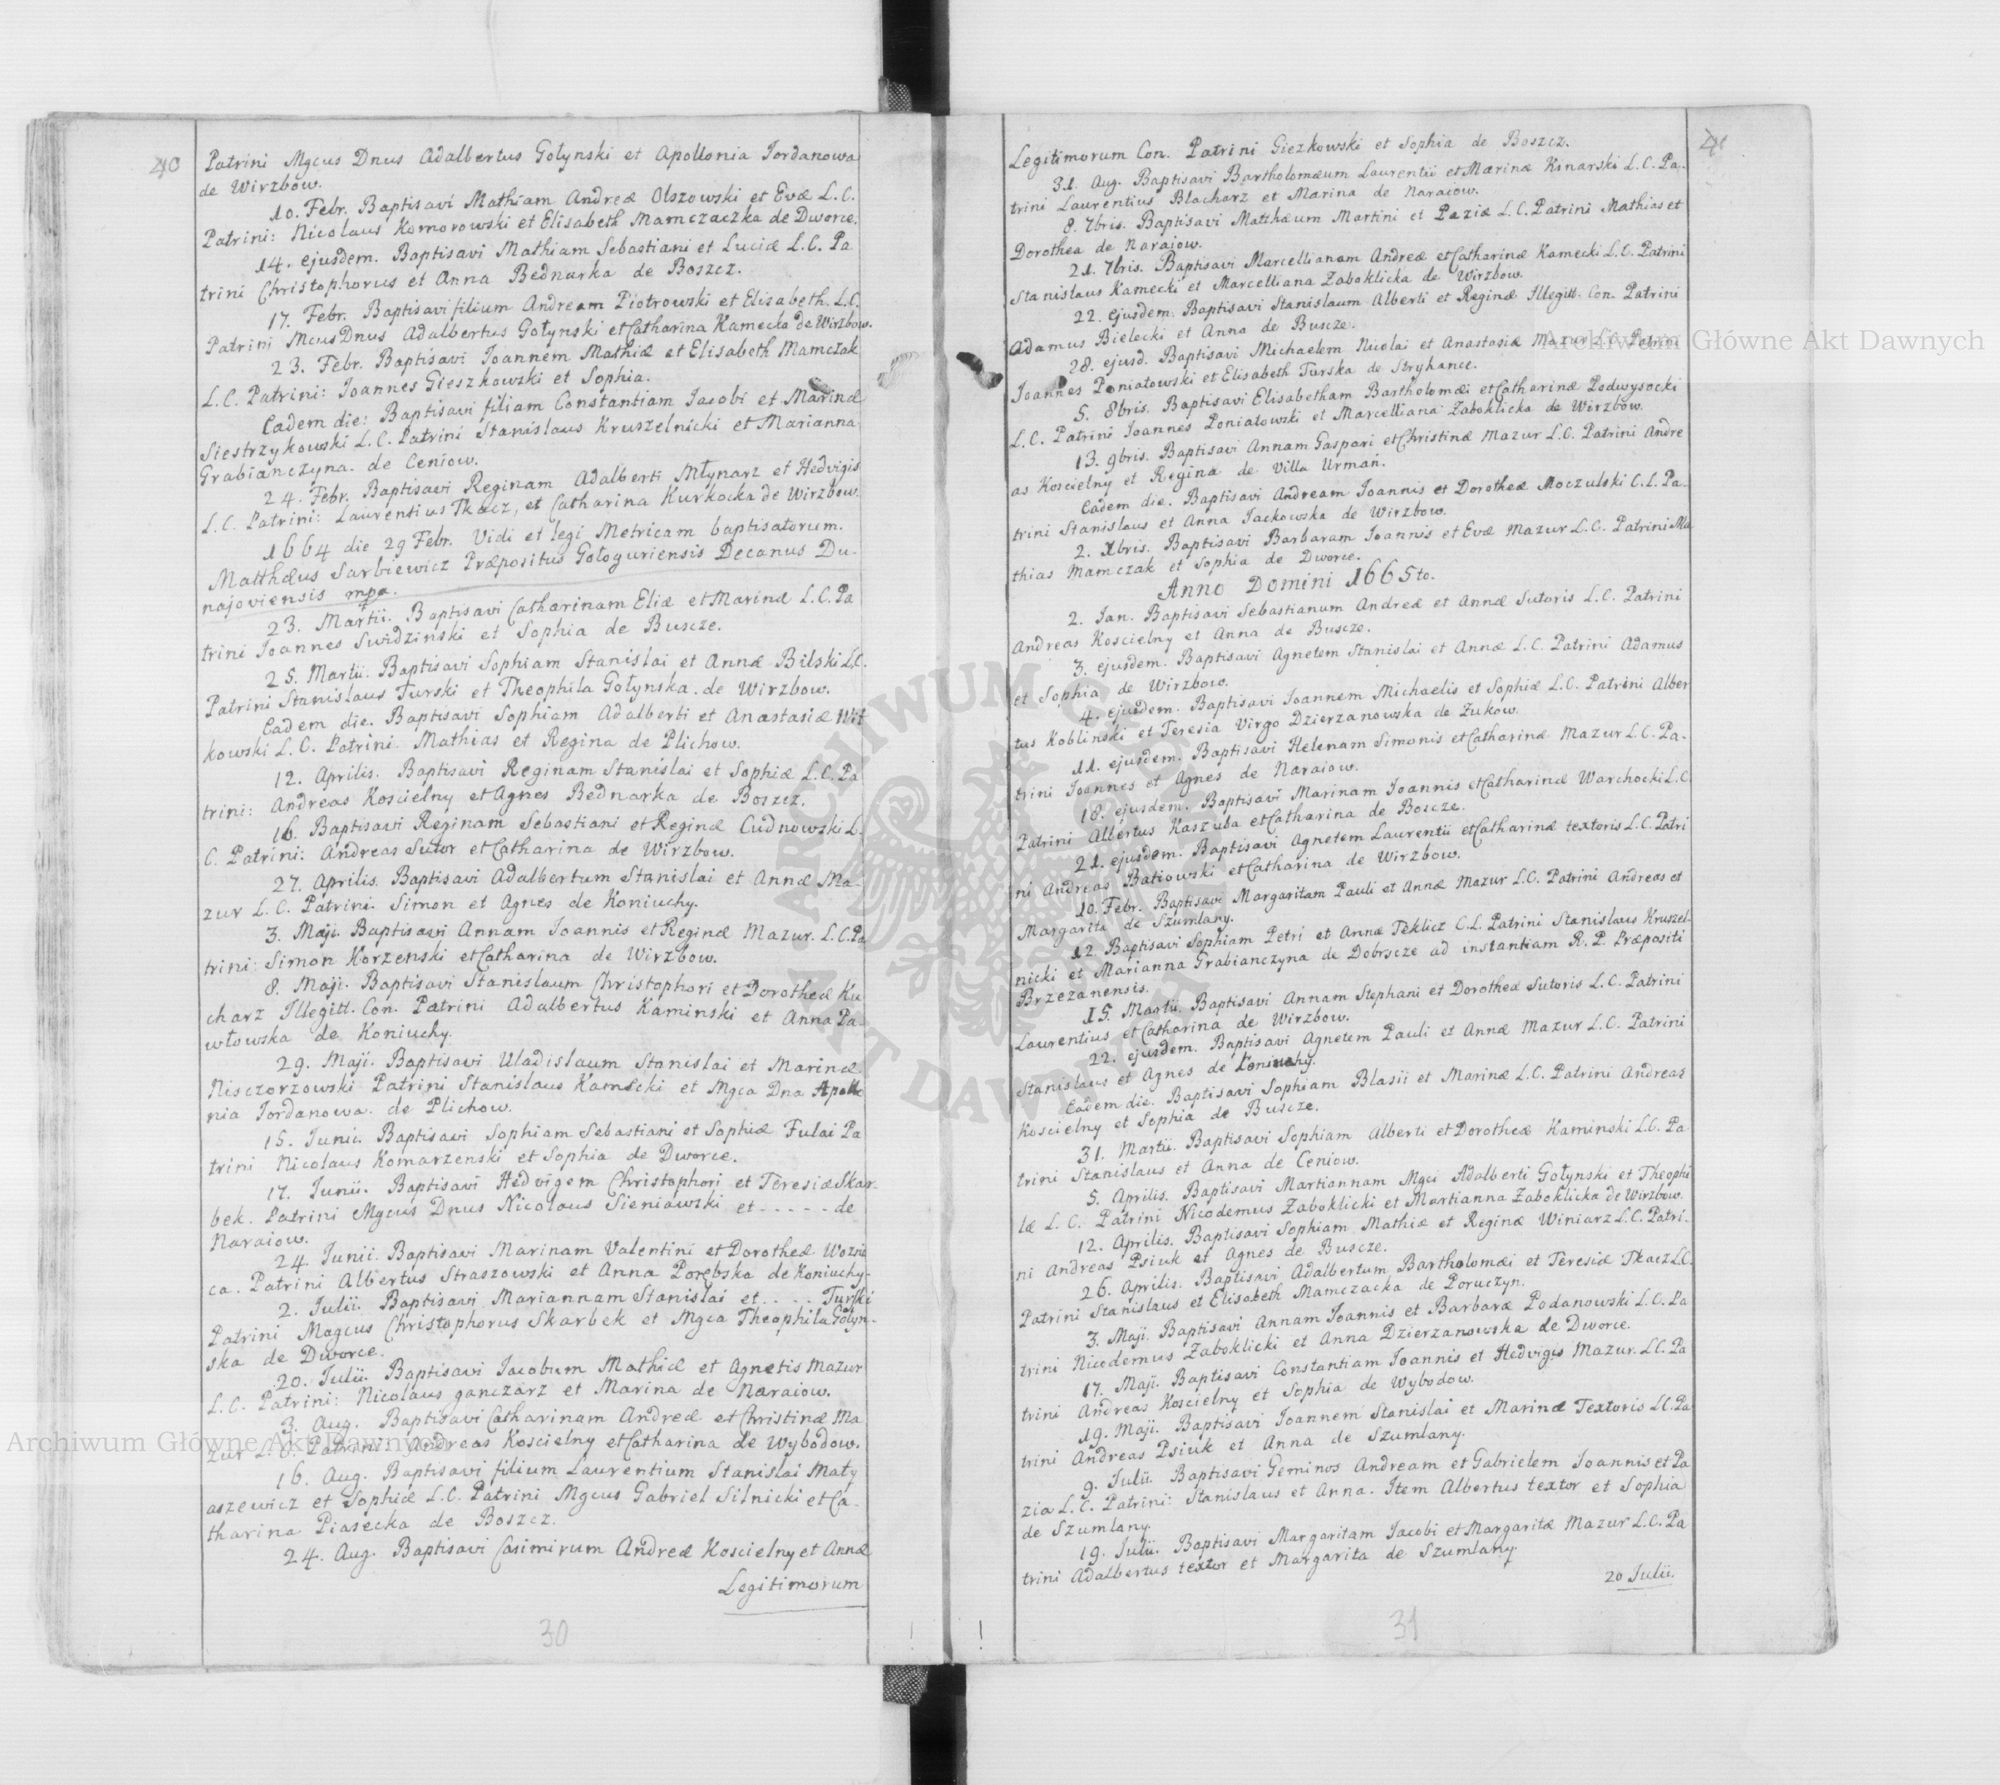 40
Patrini Mgcus Dnus Adalbertus Gołynski et Apollonia Jordanowa
de Wirzbow.
10. Febr. Baptisavi Mathiam Andreæ Olszowski et Evæ L.C.
Patrini: Nicolaus Komorowski et Elisabeth Mamczaczka de Dworce.
14. ejusdem. Baptisavi Mathiam Sebastiani et Luciæ L.C. Pa
trini Christophorus et Anna Bednarka de Boszcz.
17. Febr. Baptisavi filium Andream Piotrowski et Elisabeth. L.C.
Patrini Mcus Dnus Adalbertus Gołynski et Catharina Kamecka de Wirzbow.
23. Febr. Baptisavi Joannem Mathiæ et Elisabeth Mamczak
L.C. Patrini: Joannes Gieszkowski et Sophia.
Eadem die: Baptisavi filiam Constantiam Jacobi et Marinæ
Siestrzykowski L.C. Patrini Stanislaus Kruszelnicki et Marianna
Grabianczyna. de Ceniow.
24. Febr. Baptisavi Reginam Adalberti Młynarz et Hedvigis
L.C. Patrini: Laurentius Tkacz, et Catharina Kurkocka de Wirzbow.
1664 die 29 Febr. Vidi et legi Metricam baptisatorum.
Matthæus Sarbiewicz Præpositus Gołoguriensis Decanus Du-
najoviensis mpa.
23. Martii. Baptisavi Catharinam Eliæ et Marinæ L.C. Pa
trini Joannes Swidzinski et Sophia de Buscze.
25. Martii. Baptisavi Sophiam Stanislai et Annæ Bilski L.C.
Patrini Stanislaus Turski et Theophila Gołynska. de Wirzbow.
Eadem die. Baptisavi Sophiam Adalberti et Anastasiæ Wit
kowski L.C. Patrini Mathias et Regina de Plichow.
12. Aprilis. Baptisavi Reginam Stanislai et Sophiæ L.C. Pa
trini: Andreas Koscielny et Agnes Bednarka de Boszcz.
16. Baptisavi Reginam Sebastiani et Reginæ Cudnowski L.
C. Patrini: Andreas Sutor et Catharina de Wirzbow.
27. Aprilis. Baptisavi Adalbertum Stanislai et Annæ Ma-
zur L.C. Patrini. Simon et Agnes de Koniuchy.
3. Maji. Baptisavi Annam Joannis et Reginæ Mazur. L.C. Pa
trini: Simon Korzenski et Catharina de Wirzbow.
8. Maji. Baptisavi Stanislaum Christophori et Dorotheæ Ku
charz Illegitt. Con. Patrini Adalbertus Kaminski et Anna Pa-
włowska de Koniuchy.
29. Maji. Baptisavi Uladislaum Stanislai et Marinæ
Nisczorzowski Patrini Stanislaus Kamecki et Mgca Dna Apollo
nia Jordanowa. de Plichow.
15. Junii. Baptisavi Sophiam Sebastiani et Sophiæ Fulai Pa
trini Nicolaus Komarzenski et Sophia de Dworce.
17. Junii. Baptisavi Hedvigem Christophori et Teresiæ Skar
bek. Patrini Mgcus Dnus Nicolaus Sieniawski et - - - - - de
Naraiow.
24. Junii. Baptisavi Marinam Valentini et Dorotheæ Wozni
ca. Patrini Albertus Straszowski et Anna Porębska de Koniuchy.
2. Julii. Baptisavi Mariannam Stanislai et - - - - Turski
Patrini Magcus Christophorus Skarbek et Mgca Theophila Gołyn-
ska de Dworce.
20. Julii. Baptisavi Jacobum Mathiæ et Agnetis Mazur
L.C. Patrini: Nicolaus ganczarz et Marina de Naraiow.
3. Aug. Baptisavi Catharinam Andreæ et Christinæ Ma
zur L.C. Patrini: Andreas Koscielny et Catharina de Wybodow.
16. Aug. Baptisavi filium Laurentium Stanislai Maty
aszewicz et Sophiæ L.C. Patrini Mgcus Gabriel Silnicki et Ca-
tharina Piasecka de Boszcz.
24. Aug. Baptisavi Casimirum Andreæ Koscielny et Annæ
Legitimorum
30
41
Legitimorum Con. Patrini Giezkowski et Sophia de Boszcz.
31. Aug. Baptisavi Bartholomæum Laurentii et Marinæ Kinarski L.C. Pa-
trini Laurentius Blacharz et Marina de Naraiow.
8. 7bris. Baptisavi Matthæum Martini et Paziæ L.C. Patrini Mathias et
Dorothea de Naraiow.
21. 7bris. Baptisavi Marcellianam Andreæ et Catharinæ Kamecki L.C. Patrini
Stanislaus Kamecki et Marcelliana Zaboklicka de Wirzbow.
22. ejusdem. Baptisavi Stanislaum Alberti et Reginæ Illegitt. Con. Patrini
Adamus Bielecki et Anna de Buscze.
28. ejusd. Baptisavi Michaelem Nicolai et Anastasiæ Mazur L.C. Patrini
Joannes Poniatowski et Elisabeth Turska de Stryhance.
5. 8bris. Baptisavi Elisabetham Bartholomæi et Catharinæ Podwysocki
L.C. Patrini Joannes Poniatowski et Marcelliana Zaboklicka de Wirzbow.
13. 9bris. Baptisavi Annam Gaspari et Christinæ Mazur L.C. Patrini Andre
as Koscielny et Regina de Villa Urmań.
Eadem die. Baptisavi Andream Joannis et Dorotheæ Moczulski C.L. Pa-
trini Stanislaus et Anna Jackowska de Wirzbow.
2. Xbris. Baptisavi Barbaram Joannis et Evæ Mazur L.C. Patrini Ma
thias Mamczak et Sophia de Dworce.
Anno Domini 1665to.
2. Jan. Baptisavi Sebastianum Andreæ et Annæ Sutoris L.C. Patrini
Andreas Koscielny et Anna de Buscze.
3. ejusdem. Baptisavi Agnetem Stanislai et Annæ L.C. Patrini Adamus
et Sophia de Wirzbow.
4. ejusdem. Baptisavi Joannem Michaelis et Sophiæ L.C. Patrini Alber
tus Koblinski et Teresia Virgo Dzierzanowska de Zukow.
11. ejusdem. Baptisavi Helenam Simonis et Catharinæ Mazur L.C. Pa-
trini Joannes et Agnes de Naraiow.
18. ejusdem. Baptisavi Marinam Joannis et Catharinæ Warchocki L.C.
Patrini Albertus Kaszuba et Catharina de Boscze.
21. ejusdem. Baptisavi Agnetem Laurentii et Catharinæ textoris L.C. Patri
ni Andreas Batiowski et Catharina de Wirzbow.
10. Febr. Baptisavi Margaritam Pauli et Annæ Mazur L.C. Patrini Andreas et
Margarita de Szumlany.
12. Baptisavi Sophiam Petri et Annæ Teklicz C.L. Patrini Stanislaus Kruszel-
nicki et Marianna Grabianczyna de Dobrscze ad instantiam R.P. Præpositi
Brzezanensis.
15. Martii. Baptisavi Annam Stephani et Dorotheæ Sutoris L.C. Patrini
Laurentius et Catharina de Wirzbow.
22. ejusdem. Baptisavi Agnetem Pauli et Annæ Mazur L.C. Patrini
Stanislaus et Agnes de Koniuchy.
Eadem die. Baptisavi Sophiam Blasii et Marinæ L.C. Patrini Andreas
Koscielny et Sophia de Buscze.
31. Martii. Baptisavi Sophiam Alberti et Dorotheæ Kaminski L.C. Pa
trini Stanislaus et Anna de Ceniow.
5. Aprilis. Baptisavi Martiannam Mgci Adalberti Gołynski et Theophi
læ L.C. Patrini Nicodemus Zaboklicki et Martianna Zaboklicka de Wirzbow.
12. Aprilis. Baptisavi Sophiam Mathiæ et Reginæ Winiarz L.C. Patri-
ni Andreas Psiuk et Agnes de Buscze.
26. Aprilis. Baptisavi Adalbertum Bartholomæi et Teresiæ Tkacz L.C.
Patrini Stanislaus et Elisabeth Mamczacka de Poruczyn.
3. Maji. Baptisavi Annam Joannis et Barbaræ Podanowski L.C. Pa
trini Nicodemus Zaboklicki et Anna Dzierzanowska de Dworce.
17. Maji. Baptisavi Constantiam Joannis et Hedvigis Mazur. L.C. Pa
trini Andreas Koscielny et Sophia de Wybodow.
19. Maji. Baptisavi Joannem Stanislai et Marinæ Textoris L.C. Pa
trini Andreas Psiuk et Anna de Szumlany.
9. Julii. Baptisavi Geminos Andream et Gabrielem Joannis et Pa
zia L.C. Patrini: Stanislaus et Anna. Item Albertus textor et Sophia
de Szumlany.
19. Julii. Baptisavi Margaritam Jacobi et Margaritæ Mazur L.C. Pa
trini Adalbertus textor et Margarita de Szumlany.
20 Julii.
31
Archiwum Główne Akt Dawnych
Archiwum Główne Akt Dawnych
ARCHIWUM GŁÓWNE AKT DAWNYCH